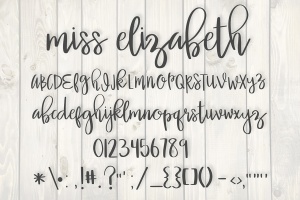 miss elizabeth
ABCDEFGHIJKLMNOPQRSTUVWXYZ
abcdefghijklmnopqrstuvwxyz
0123456789
*\•:,!#.?"';/_{}[]()-<>,"""'